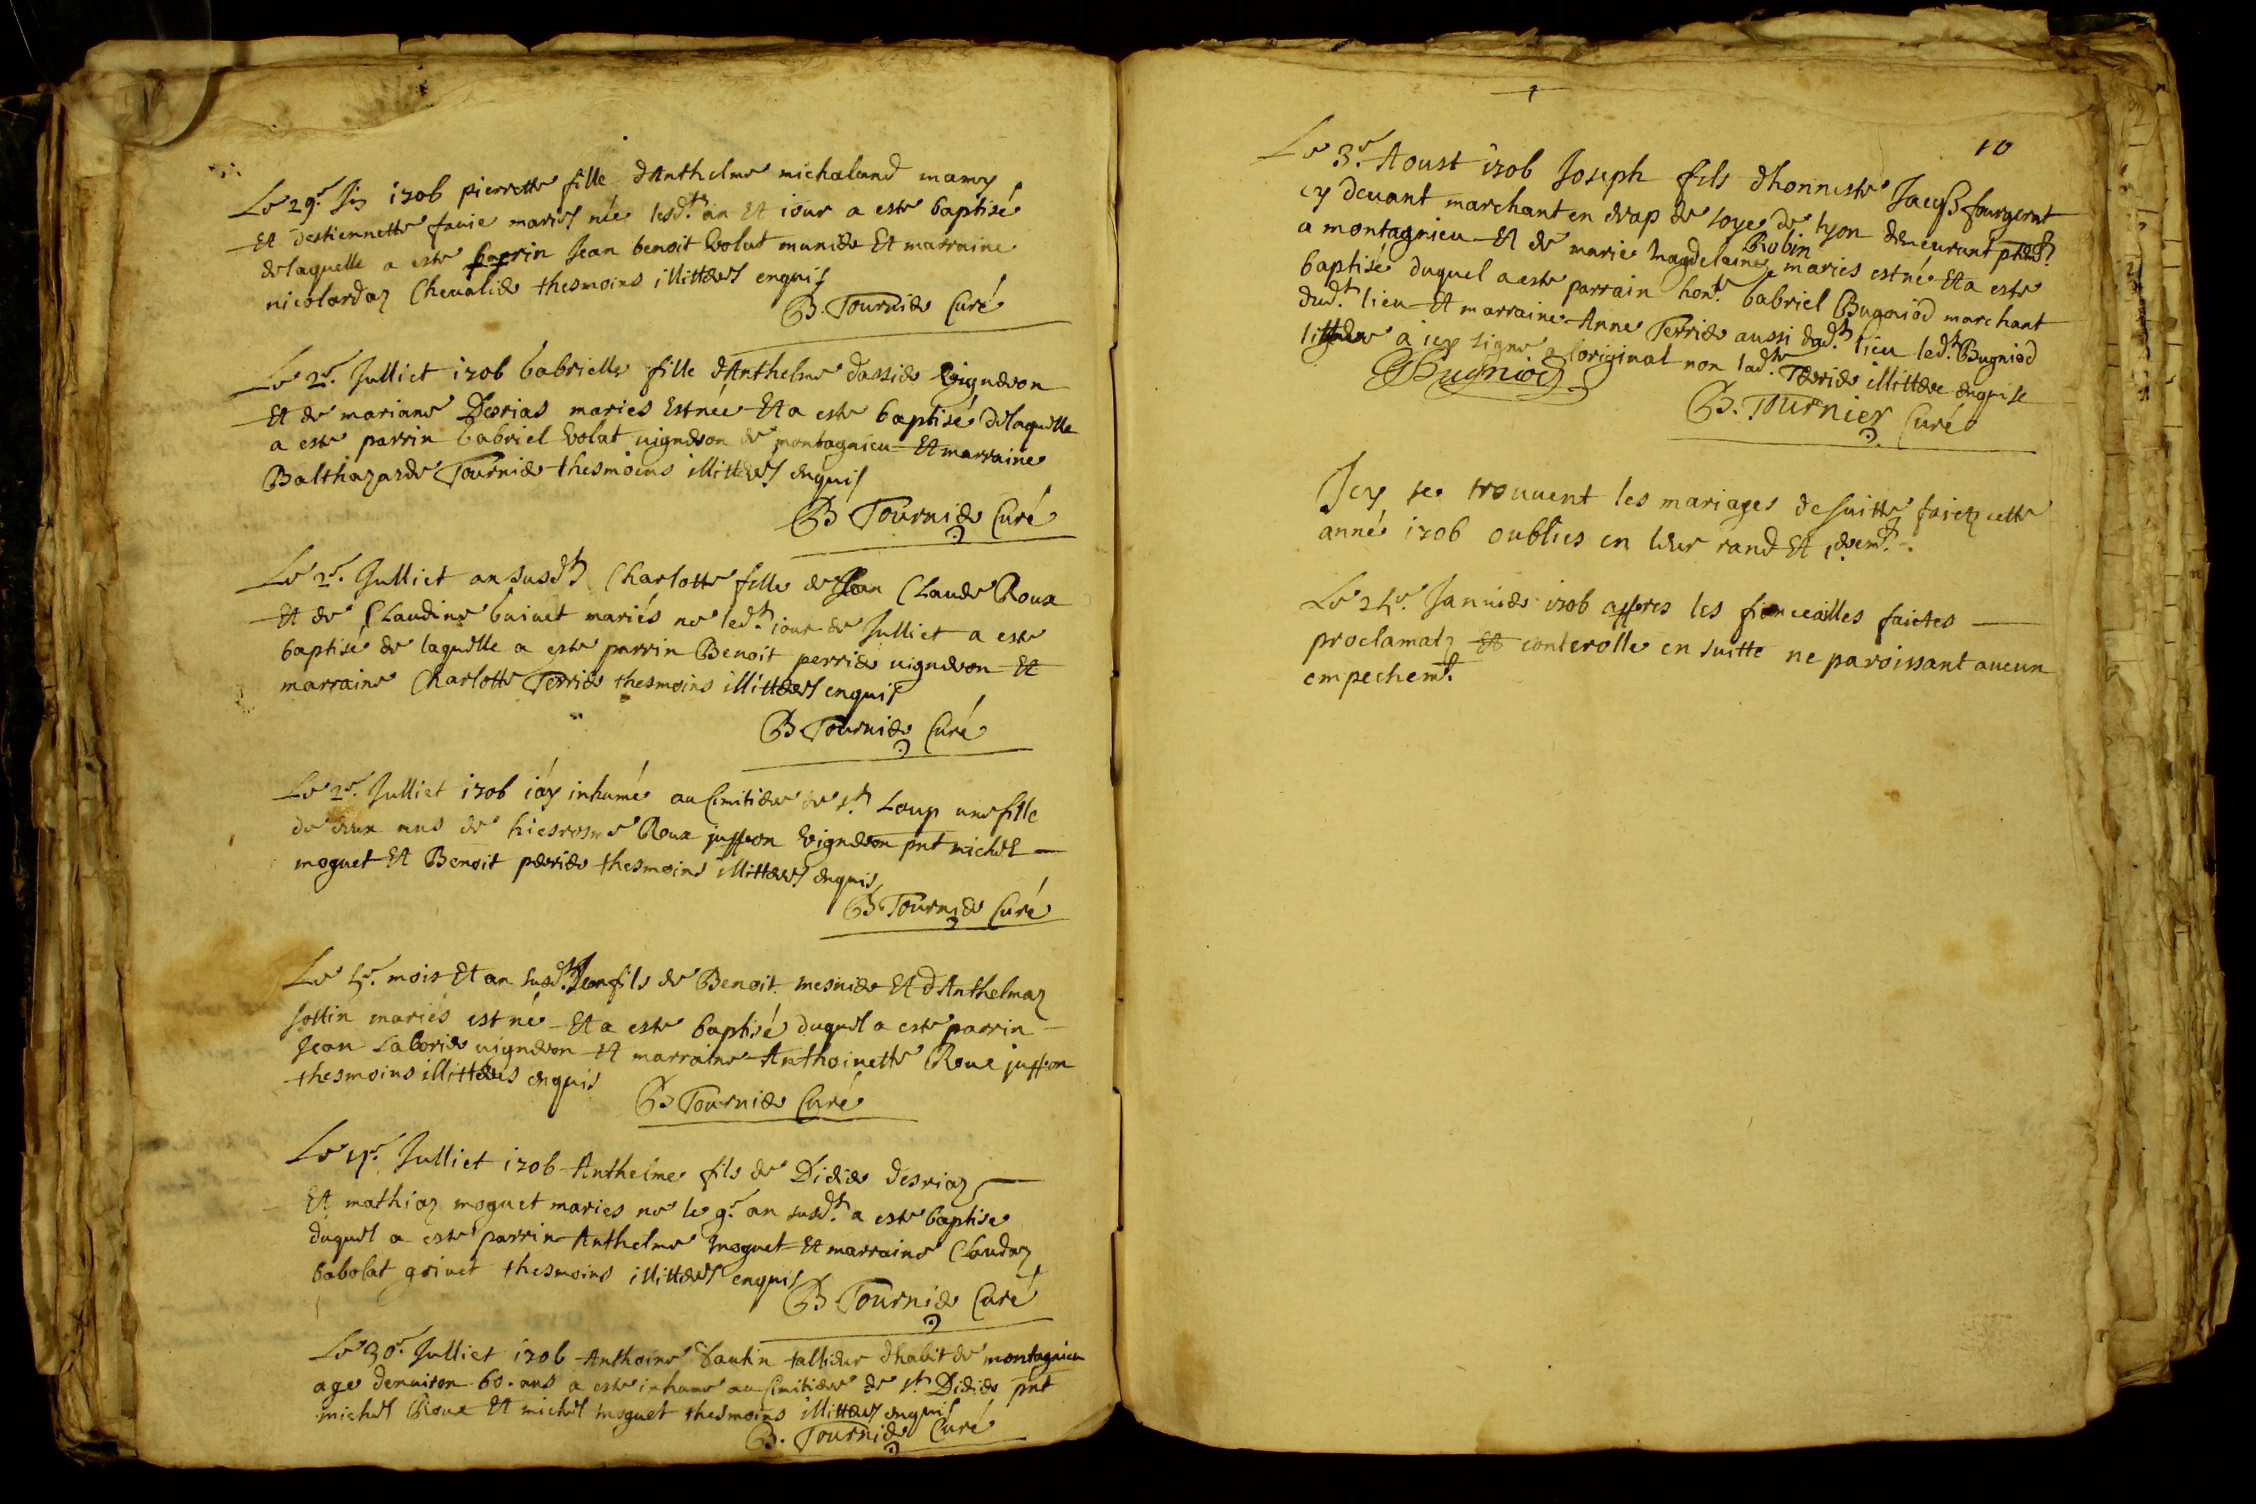 Le 29e Jin 1706 pierrette fille dAnthelme michaland mamy
Et destiennette favie mariés née lesd.t an Et iour a este baptisé
delaquelle a este parrin Jean benoit Volut munide Et marraine
nicolardaz Chevalide thesmoins illitterés enquis
B. Tournier Curé
Le 2e. Julliet 1706 Gabrielle fille dAnthelme dassier Vigneron
Et de mariane Derias maries Est née Et a este baptisé delaquelle
a este parrin Gabriel Volat vigneron de montagnieu Et marraine
Balthazarde Tournier thesmoins illitterés enquis
B Tournier Curé
Le 2e. Julliet an susd.t Charlotte fille de Jean Claude Roux
Et de Claudine buivet mariés ne led.t iour de Julliet a este
baptisé de laquelle a este parrin Benoit perrier vigneron Et
marraine Charlotte Terrier thesmoins illitterés enquis
B Tournier Curé
Le 2e. Julliet 1706 iáy inhumé au Cimitiere de s.t Loup une fille
de deux ans de hierosme Roux juffron Vigneron pnt michel
moguet Et Benoit perier thesmoins illitterés enquis
B Tournier Curé
Le 5e. mois Et an susd.t Jean fils de Benoit mesnier Et dAnthelmaz
sottin mariés est né Et a este baptisé duquel a este parrin
Jean Laborier vigneron Et marraine Anthoinette Roux juffron
thesmoins illitterés enquis
B Tournier Curé
Le 11e. Julliet 1706 Anthelme fils de Didier Desriaz
Et mathiaz moguet maries ne le 9e an susd.t a este baptise
duquel a este parrin Anthelme moguet Et marraine Claudaz
babolat grivet thesmoins illitterés enquis
B Tournier Curé
Le 30e. Julliet 1706 Anthoine Vautin tallieur dhabit de montagnieu
age denviron 60. ans a este inhume au Cimitiere de s.t Didier pnt
michel Roux Et michel moguet thesmoins illitterés enquis
B. Tournier Curé
10
Le 3e. Aoust 1706 Joseph fils dhonneste Jacqs fourgerat
cy devant marchant en drap de soye de lyon demeurant
a montagnieu Et de marie magdelaine Robin maries est né Et a este
baptisé duquel a este parrain hon.te Gabriel Bugniod marchant
dud.t lieu Et marraine Anne Terrier aussi dud.t lieu led.t Bugniod
a icy signe loriginal non lad.te Terrier illittere enquise
Bugniod
B. Tournier Curé
Icy se trouvent les mariages desuitte faictz cette
année 1706 oublies en leur rand Et
Le 25e. Janvier 1706 appres les fiancailles faictes
proclamatz Et conterolle en suitte ne paroissant aucun
empechem.t